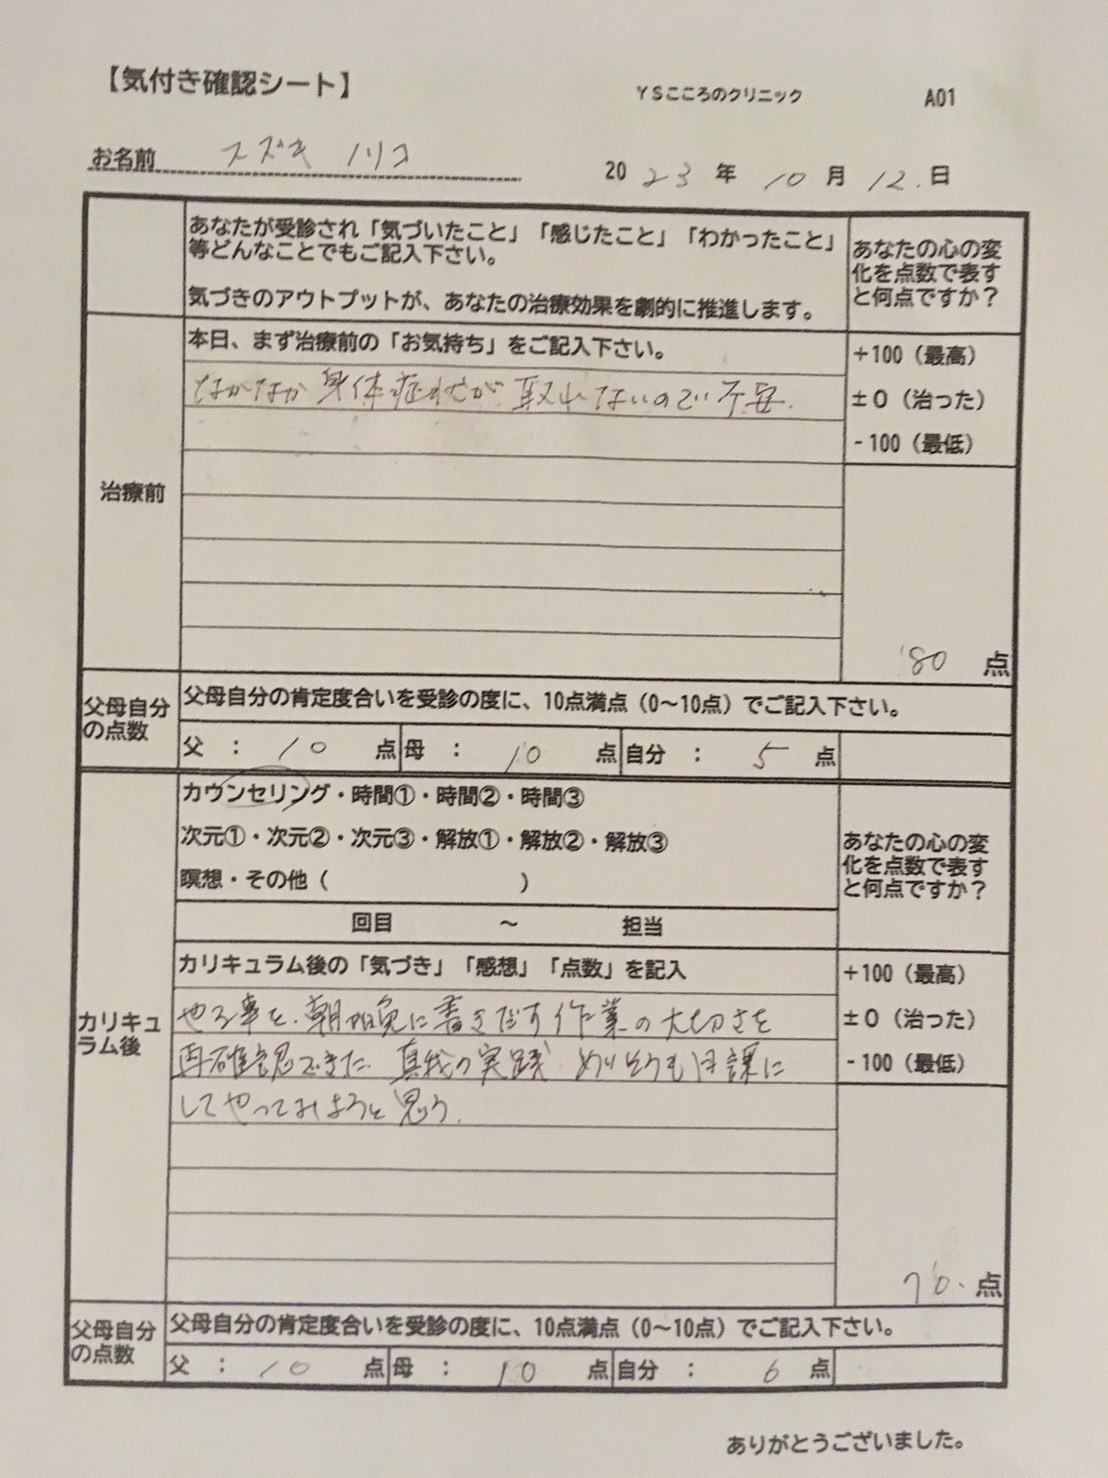 【気付き確認シート】
YSこころのクリニック
A01
お名前 スズキ ノリコ
2023年10月12.日
あなたが受診され「気づいたこと」「感じたこと」「わかったこと」
等どんなことでもご記入下さい。
気づきのアウトプットが、あなたの治療効果を劇的に推進します。
あなたの心の変
化を点数で表す
と何点ですか？
治療前
本日、まず治療前の「お気持ち」をご記入下さい。
なかなか身体症状が取れないので不安.
+100（最高）
±0（治った）
-100（最低）
80 点
父母自分
の点数
父母自分の肯定度合いを受診の度に、10点満点（0～10点）でご記入下さい。
父 ： 10 点 母 ： 10 点 自分 ： 5 点
カウンセリング・時間①・時間②・時間③
次元①・次元②・次元③・解放①・解放②・解放③
瞑想・その他（ ）
回目 ～ 担当
あなたの心の変
化を点数で表す
と何点ですか？
カリキュ
ラム後
カリキュラム後の「気づき」「感想」「点数」を記入
やる事を、朝昼晩に書きだす作業の大切さを
再確認できた. 真我の実践、めいそうも日課に
してやってみようと思う.
+100（最高）
±0（治った）
-100（最低）
70. 点
父母自分
の点数
父母自分の肯定度合いを受診の度に、10点満点（0～10点）でご記入下さい。
父 ： 10 点 母 ： 10 点 自分 ： 6 点
ありがとうございました。